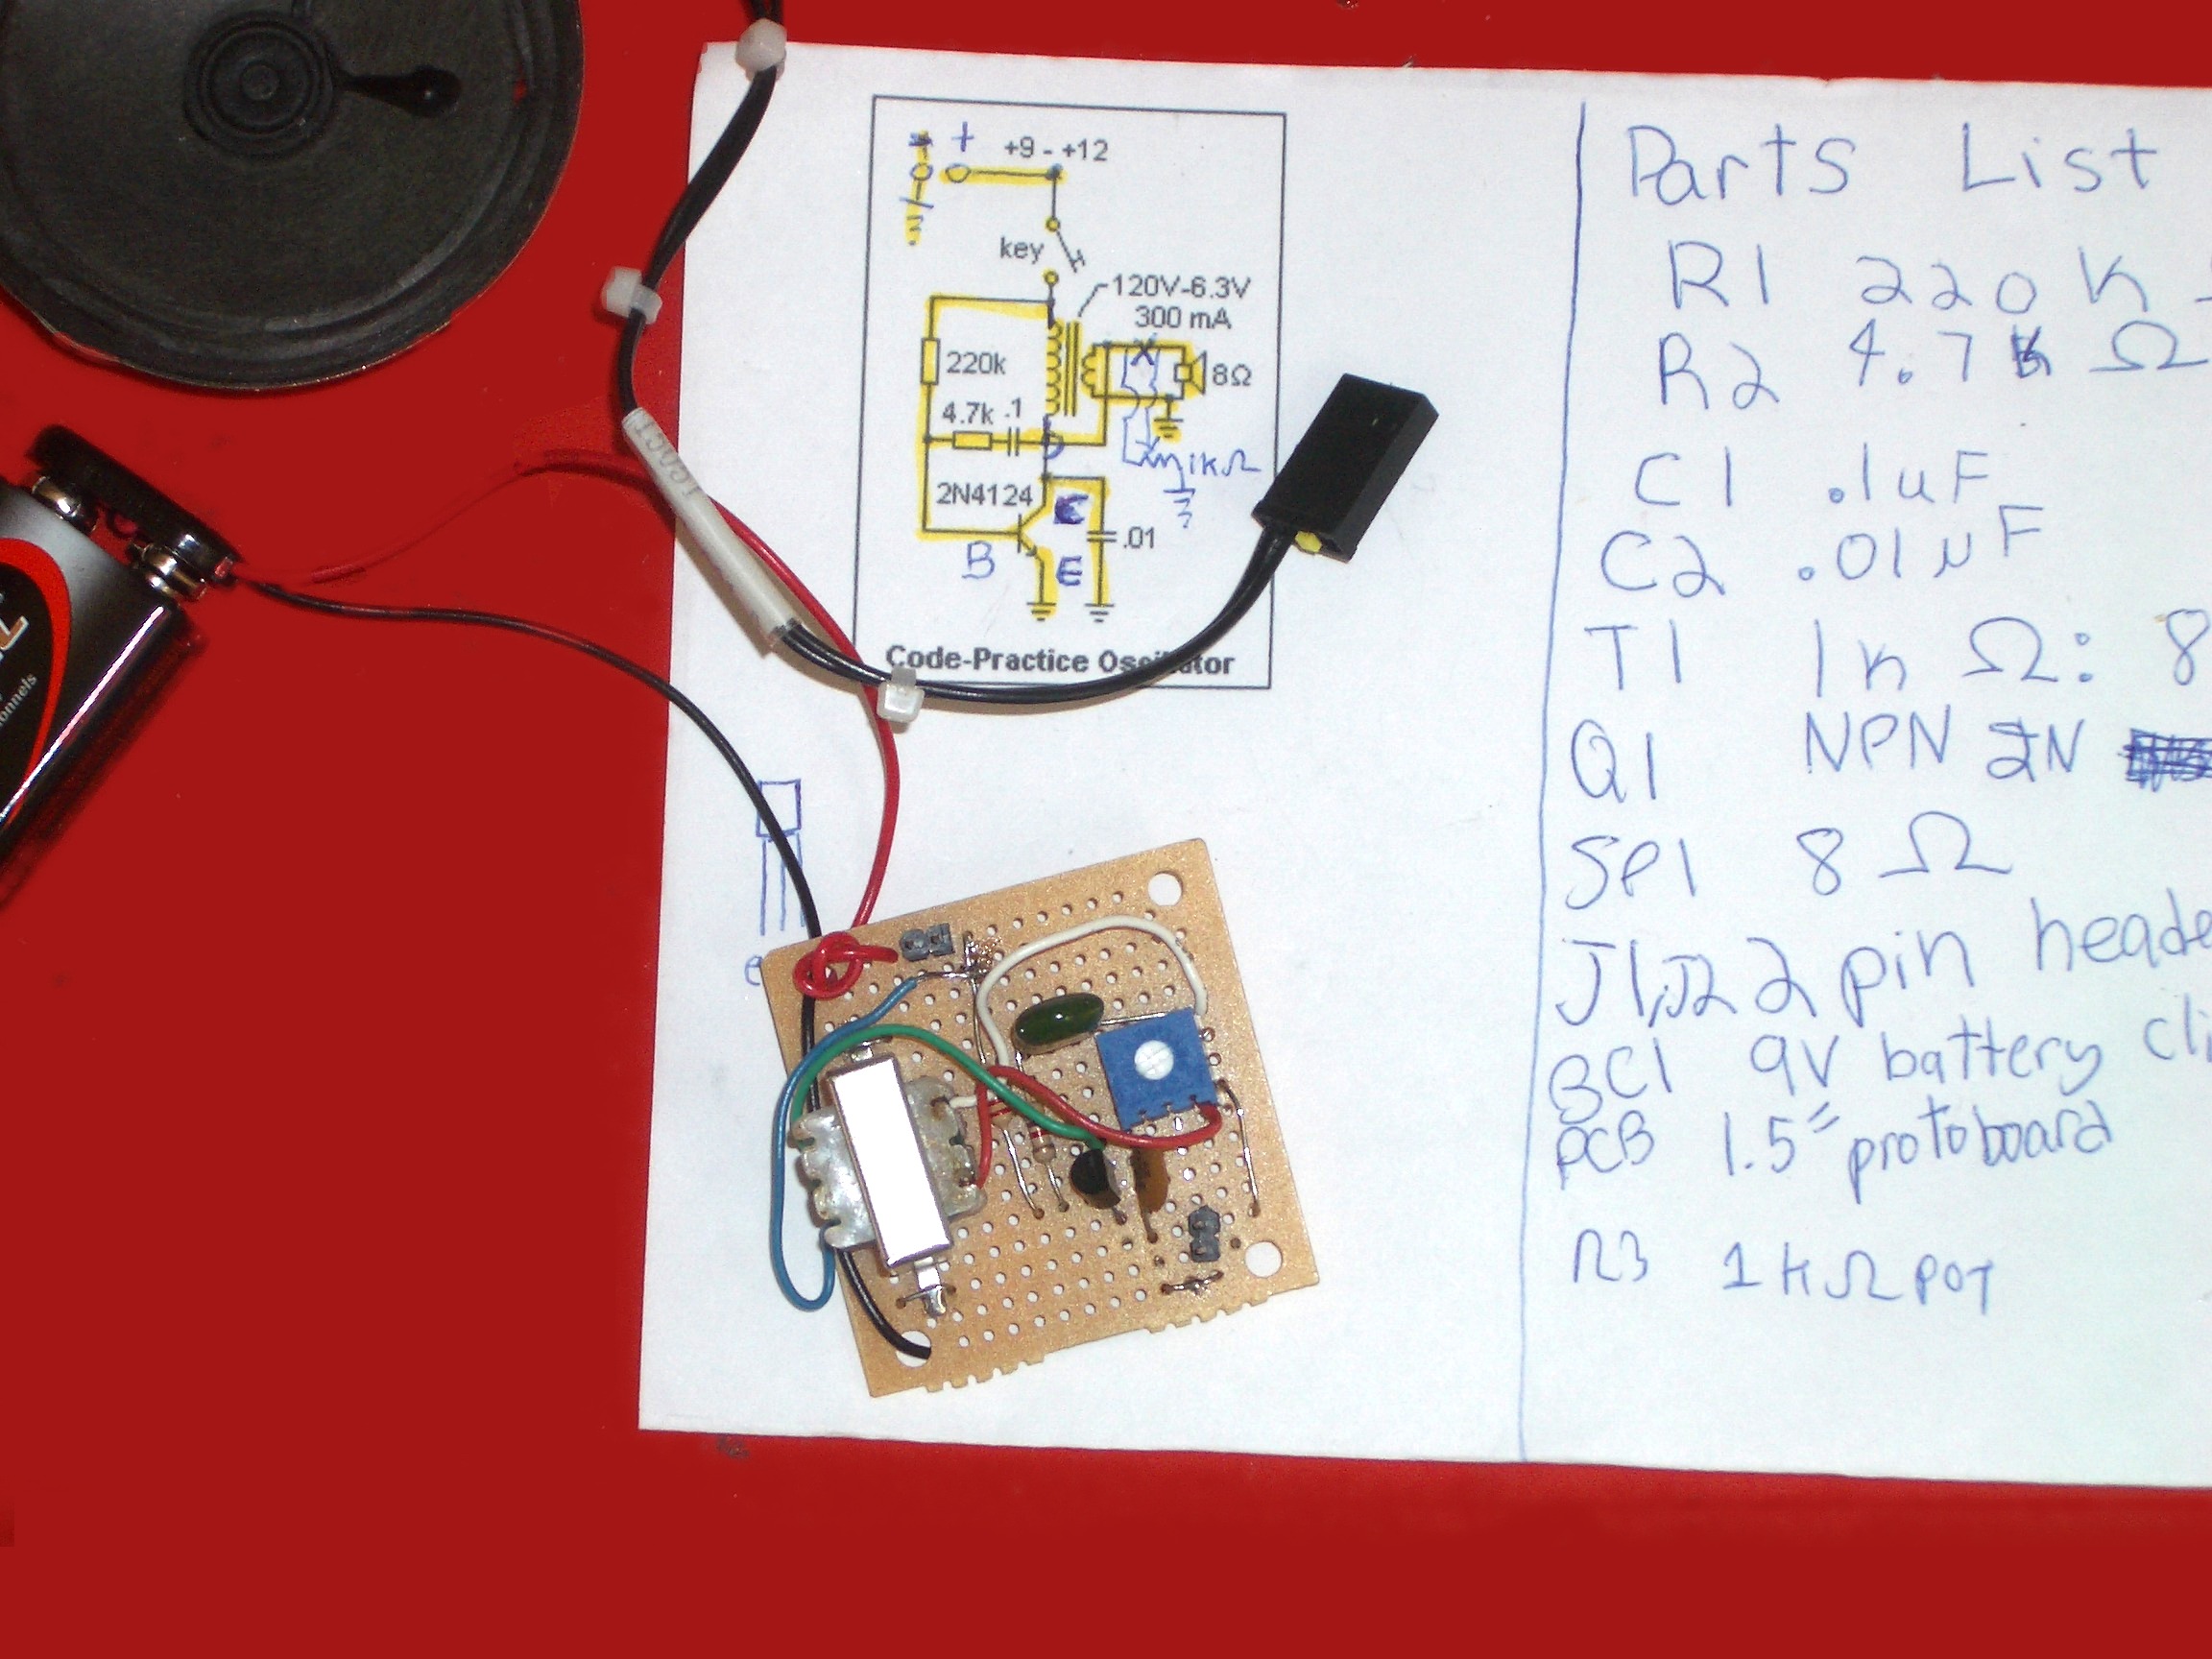 +
+9 - +12
key
120V-6.3V
300 mA
220k
8Ω
4.7k .1
1kΩ
2N4124
C
.01
B
E
Code-Practice
Parts List
R1 220 K
R2 4.7 K Ω
C1 .1uF
C2 .01µF
T1 1K Ω: 8
Q1 NPN 2N
SP1 8 Ω
J1,J2 2 pin
BC1 9V battery
PCB 1.5" protoboard
R3 1KΩ POT
e